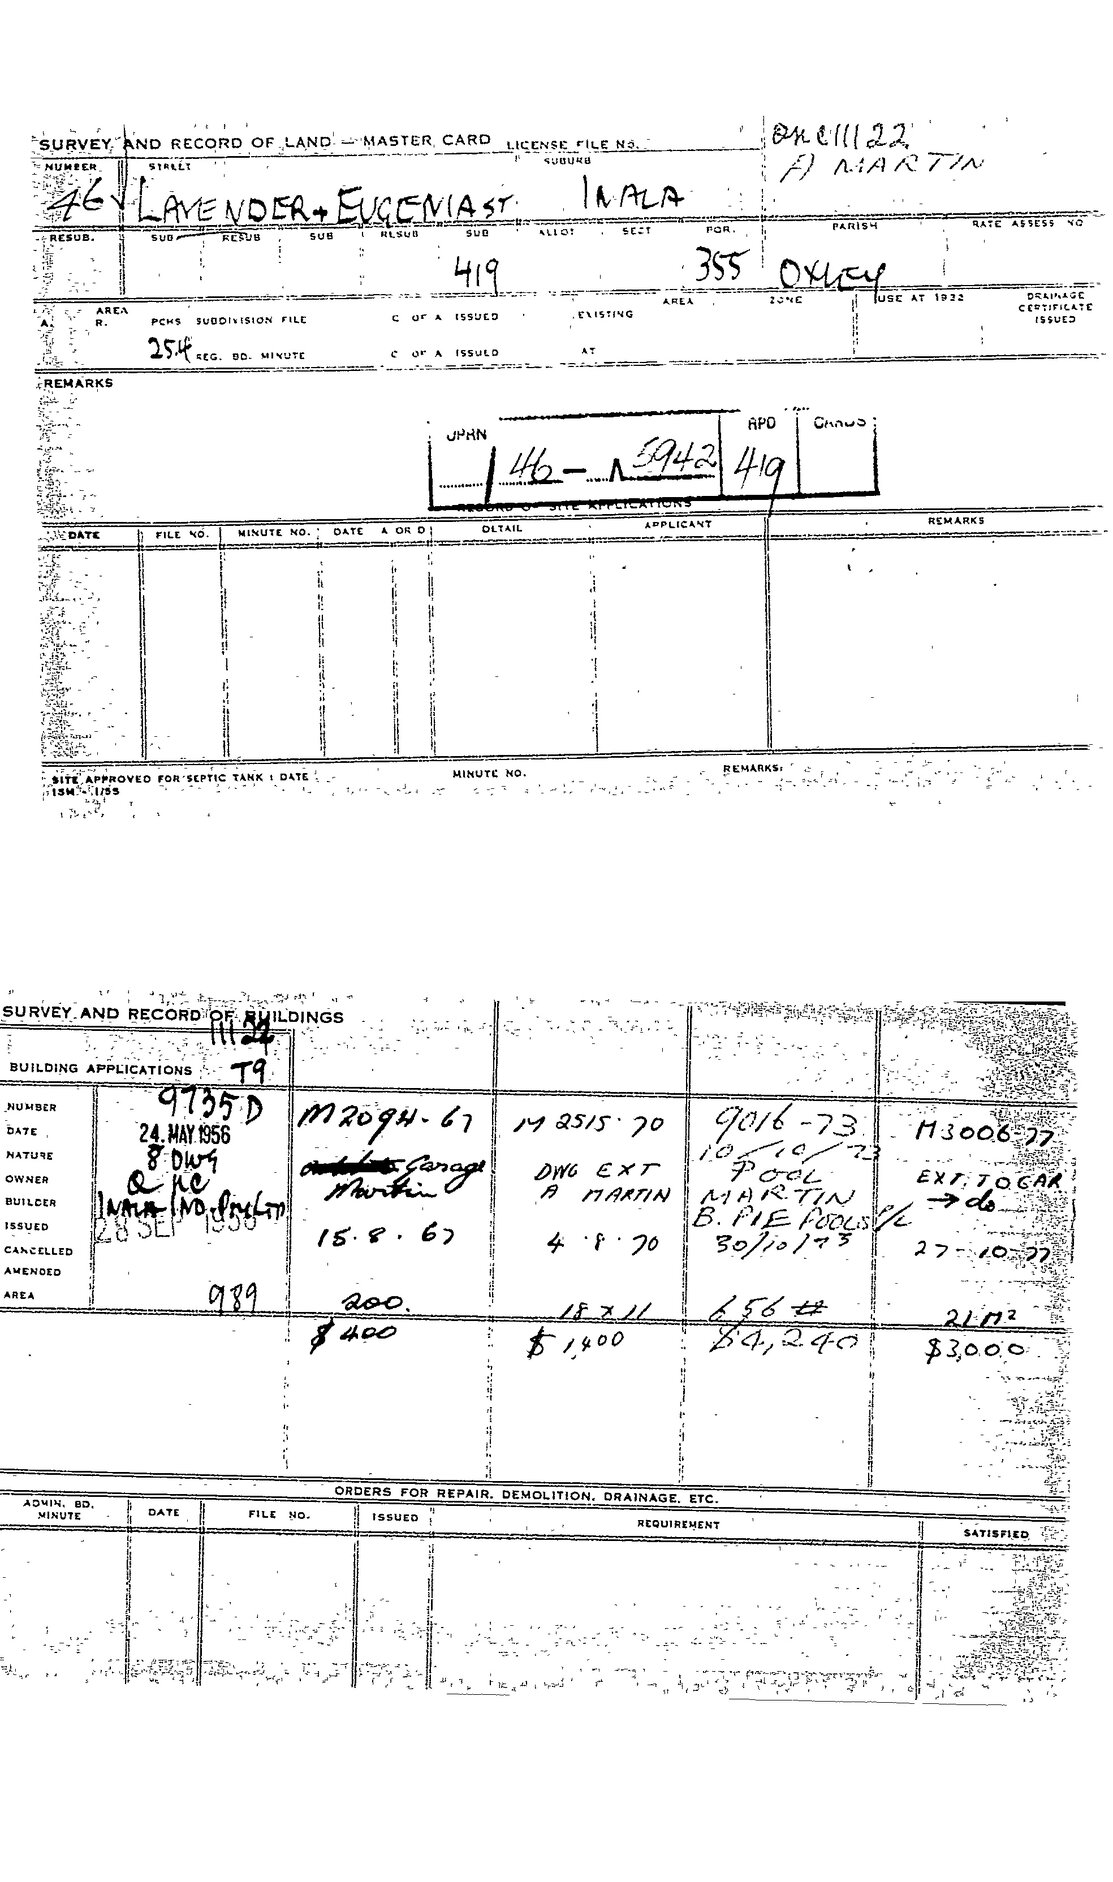 SURVEY AND RECORD OF LAND — MASTER CARD LICENSE FILE NO.
QHC 11122
A MARTIN
NUMBER STREET SUBURB
46 LAVENDER + EUGENIA ST. INALA
RESUB. SUB RESUB SUB RESUB SUB ALLOT SECT POR. PARISH RATE ASSESS NO
419 355 OXLEY
AREA ZONE USE AT 1922 DRAINAGE CERTIFICATE ISSUED
AREA
A. R. PCHS SUBDIVISION FILE C OF A ISSUED EXISTING
25.4 REG. BD. MINUTE C OF A ISSUED AT
REMARKS
UPRN APD CARDS
46 — 5942 419
RECORD OF SITE APPLICATIONS
DATE FILE NO. MINUTE NO. DATE A OR D DETAIL APPLICANT REMARKS
SITE APPROVED FOR SEPTIC TANK : DATE MINUTE NO. REMARKS:
15M - 1/55
SURVEY AND RECORD OF BUILDINGS
11122
BUILDING APPLICATIONS T9
NUMBER 9735 D M2094-67 M 2515.70 9016-73 M3006-77
DATE 24. MAY 1956 10/10/73
NATURE 8 DWG Garage DWG EXT POOL EXT. TO GAR
OWNER Q HC Martin A MARTIN MARTIN → do
BUILDER INALA IND. B. PIE POOLS P/L
ISSUED 28 SEP 1956 15.8.67 4.8.70 30/10/73 27-10-77
CANCELLED
AMENDED
AREA 989 200. 18 x 11 656 # 21 M²
$400 $1,400 $4,240 $3,000
ORDERS FOR REPAIR. DEMOLITION. DRAINAGE. ETC.
ADMIN. BD. MINUTE DATE FILE NO. ISSUED REQUIREMENT SATISFIED